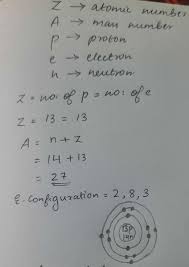 Z → atomic number
A → mass number
p → proton
e → electron
n → neutron
Z = no: of p = no: of e
Z = 13 = 13
A = n + Z
= 14 + 13
= 27
E. Configuration = 2, 8, 3
13p
14n